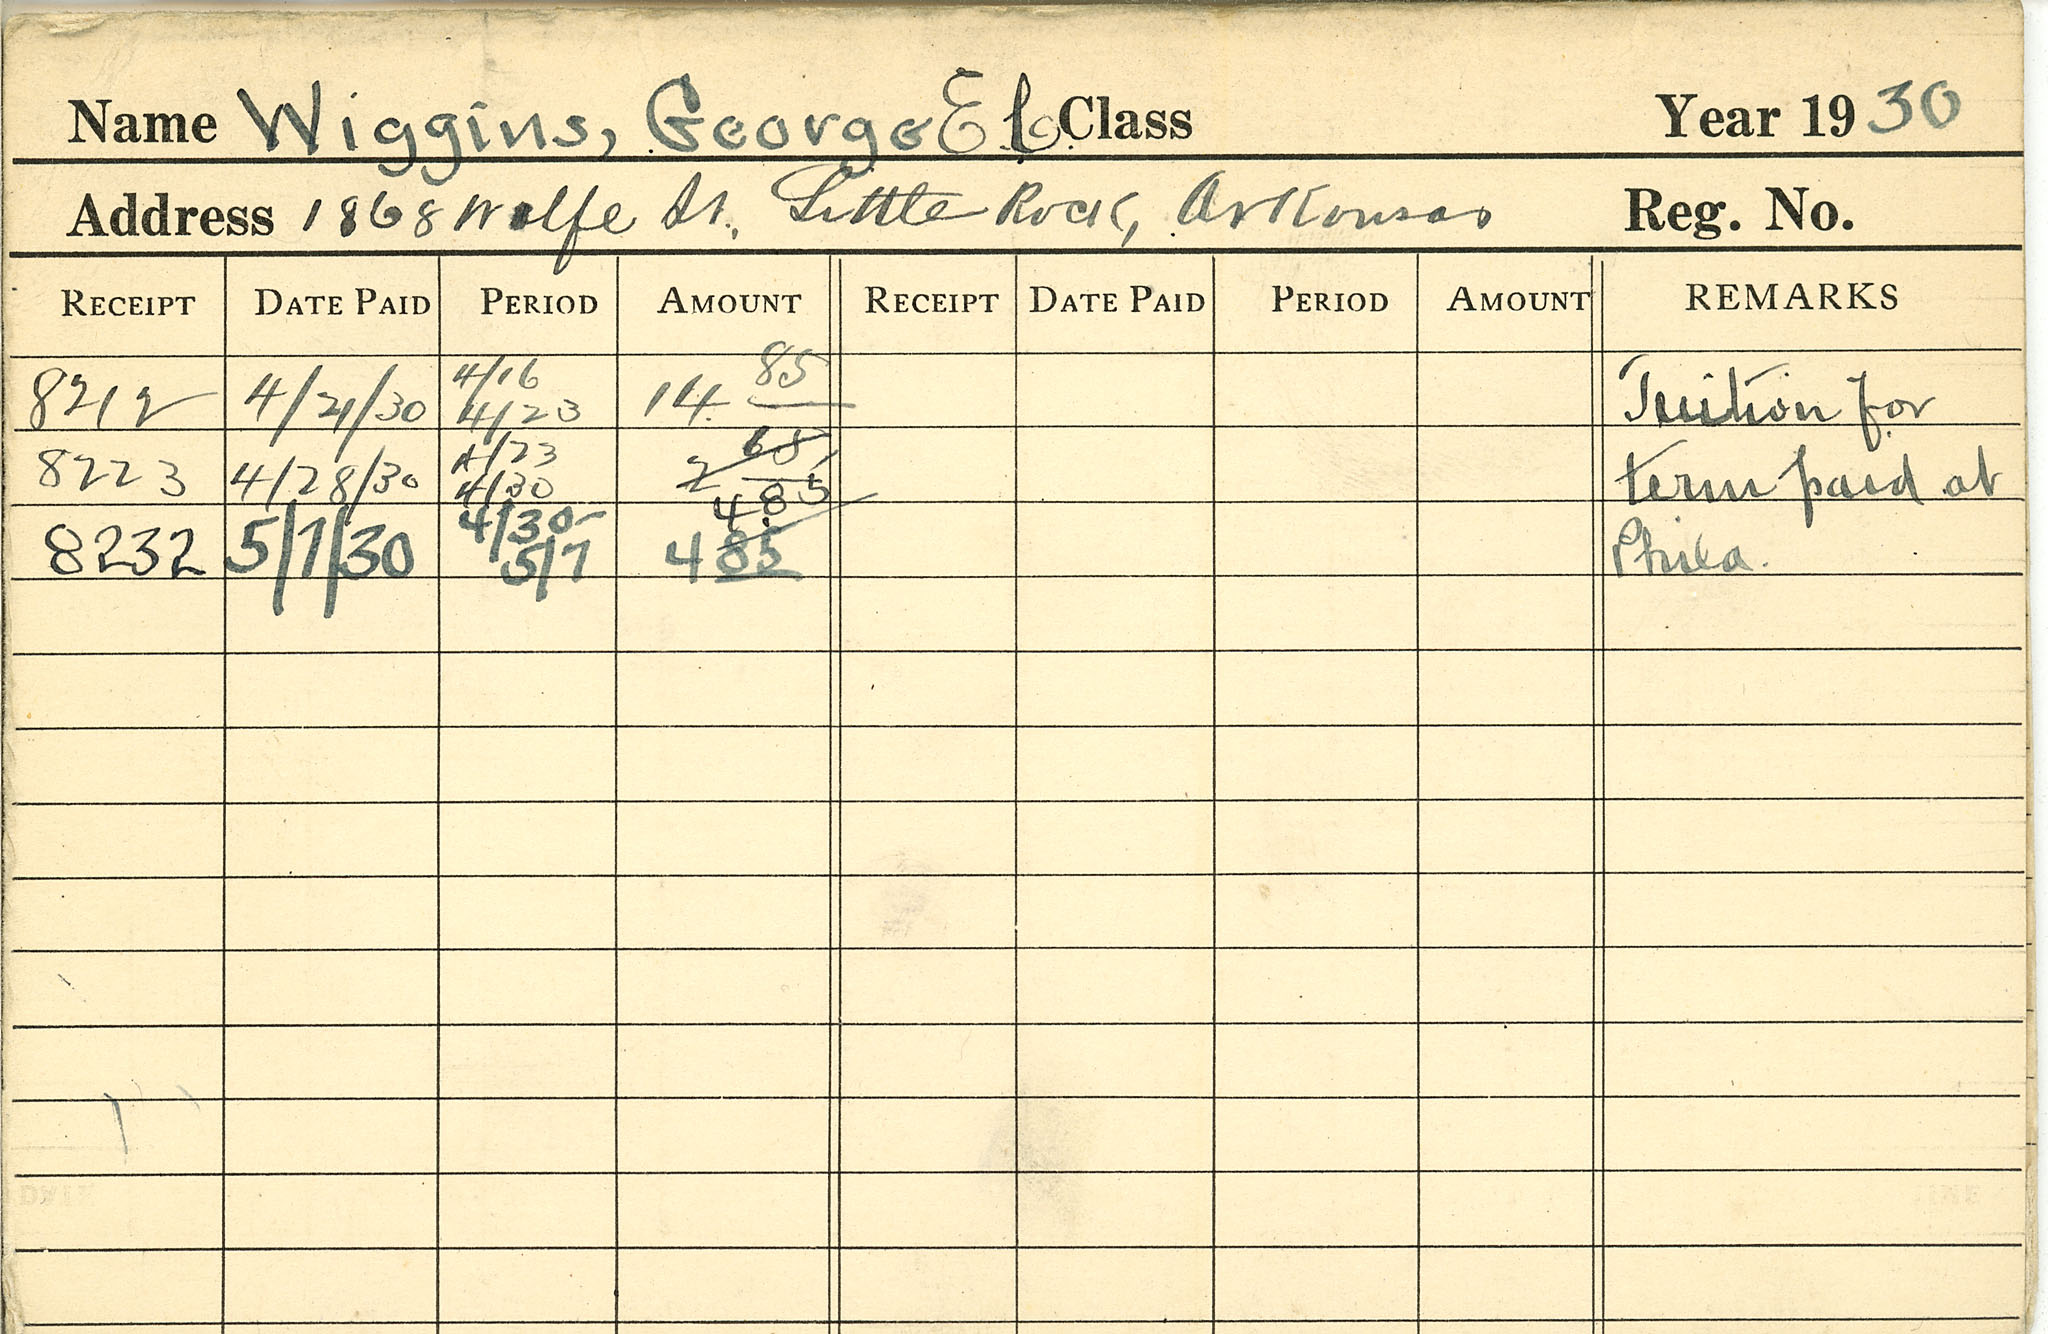 Name Wiggins, George E L Class Year 1930
Address 1868 Wolfe St., Little Rock, Arkansas Reg. No.
RECEIPT DATE PAID PERIOD AMOUNT RECEIPT DATE PAID PERIOD AMOUNT REMARKS
8212 4/21/30 4/16 4/23 14.85 Tuition for
8223 4/28/30 4/23 4/30 2 68 4 85 term paid at
8232 5/7/30 4/30- 5/7 4 85 Phila.